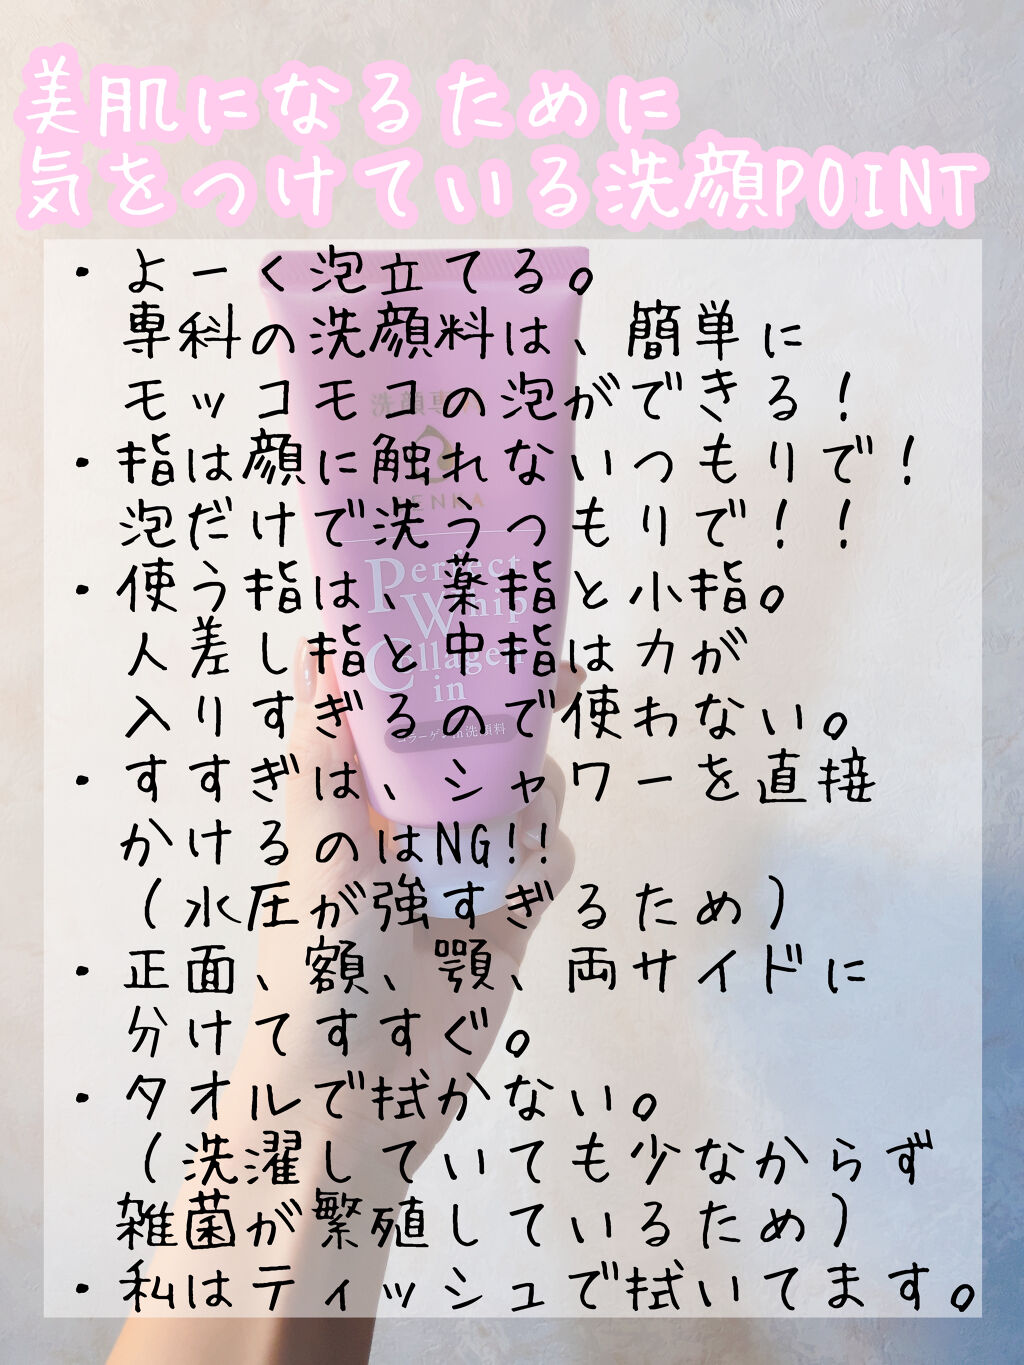 美肌になるために
気をつけている洗顔POINT
・よーく泡立てる。
専科の洗顔料は、簡単に
モッコモコの泡ができる！
・指は顔に触れないつもりで！
泡だけで洗うつもりで！！
・使う指は、薬指と小指。
人差し指と中指は力が
入りすぎるので使わない。
・すすぎは、シャワーを直接
かけるのはNG!!
（水圧が強すぎるため）
・正面、額、顎、両サイドに
分けてすすぐ。
・タオルで拭かない。
（洗濯していても少なからず
雑菌が繁殖しているため）
・私はティッシュで拭いてます。
Perfect
Whip
Collagen
in